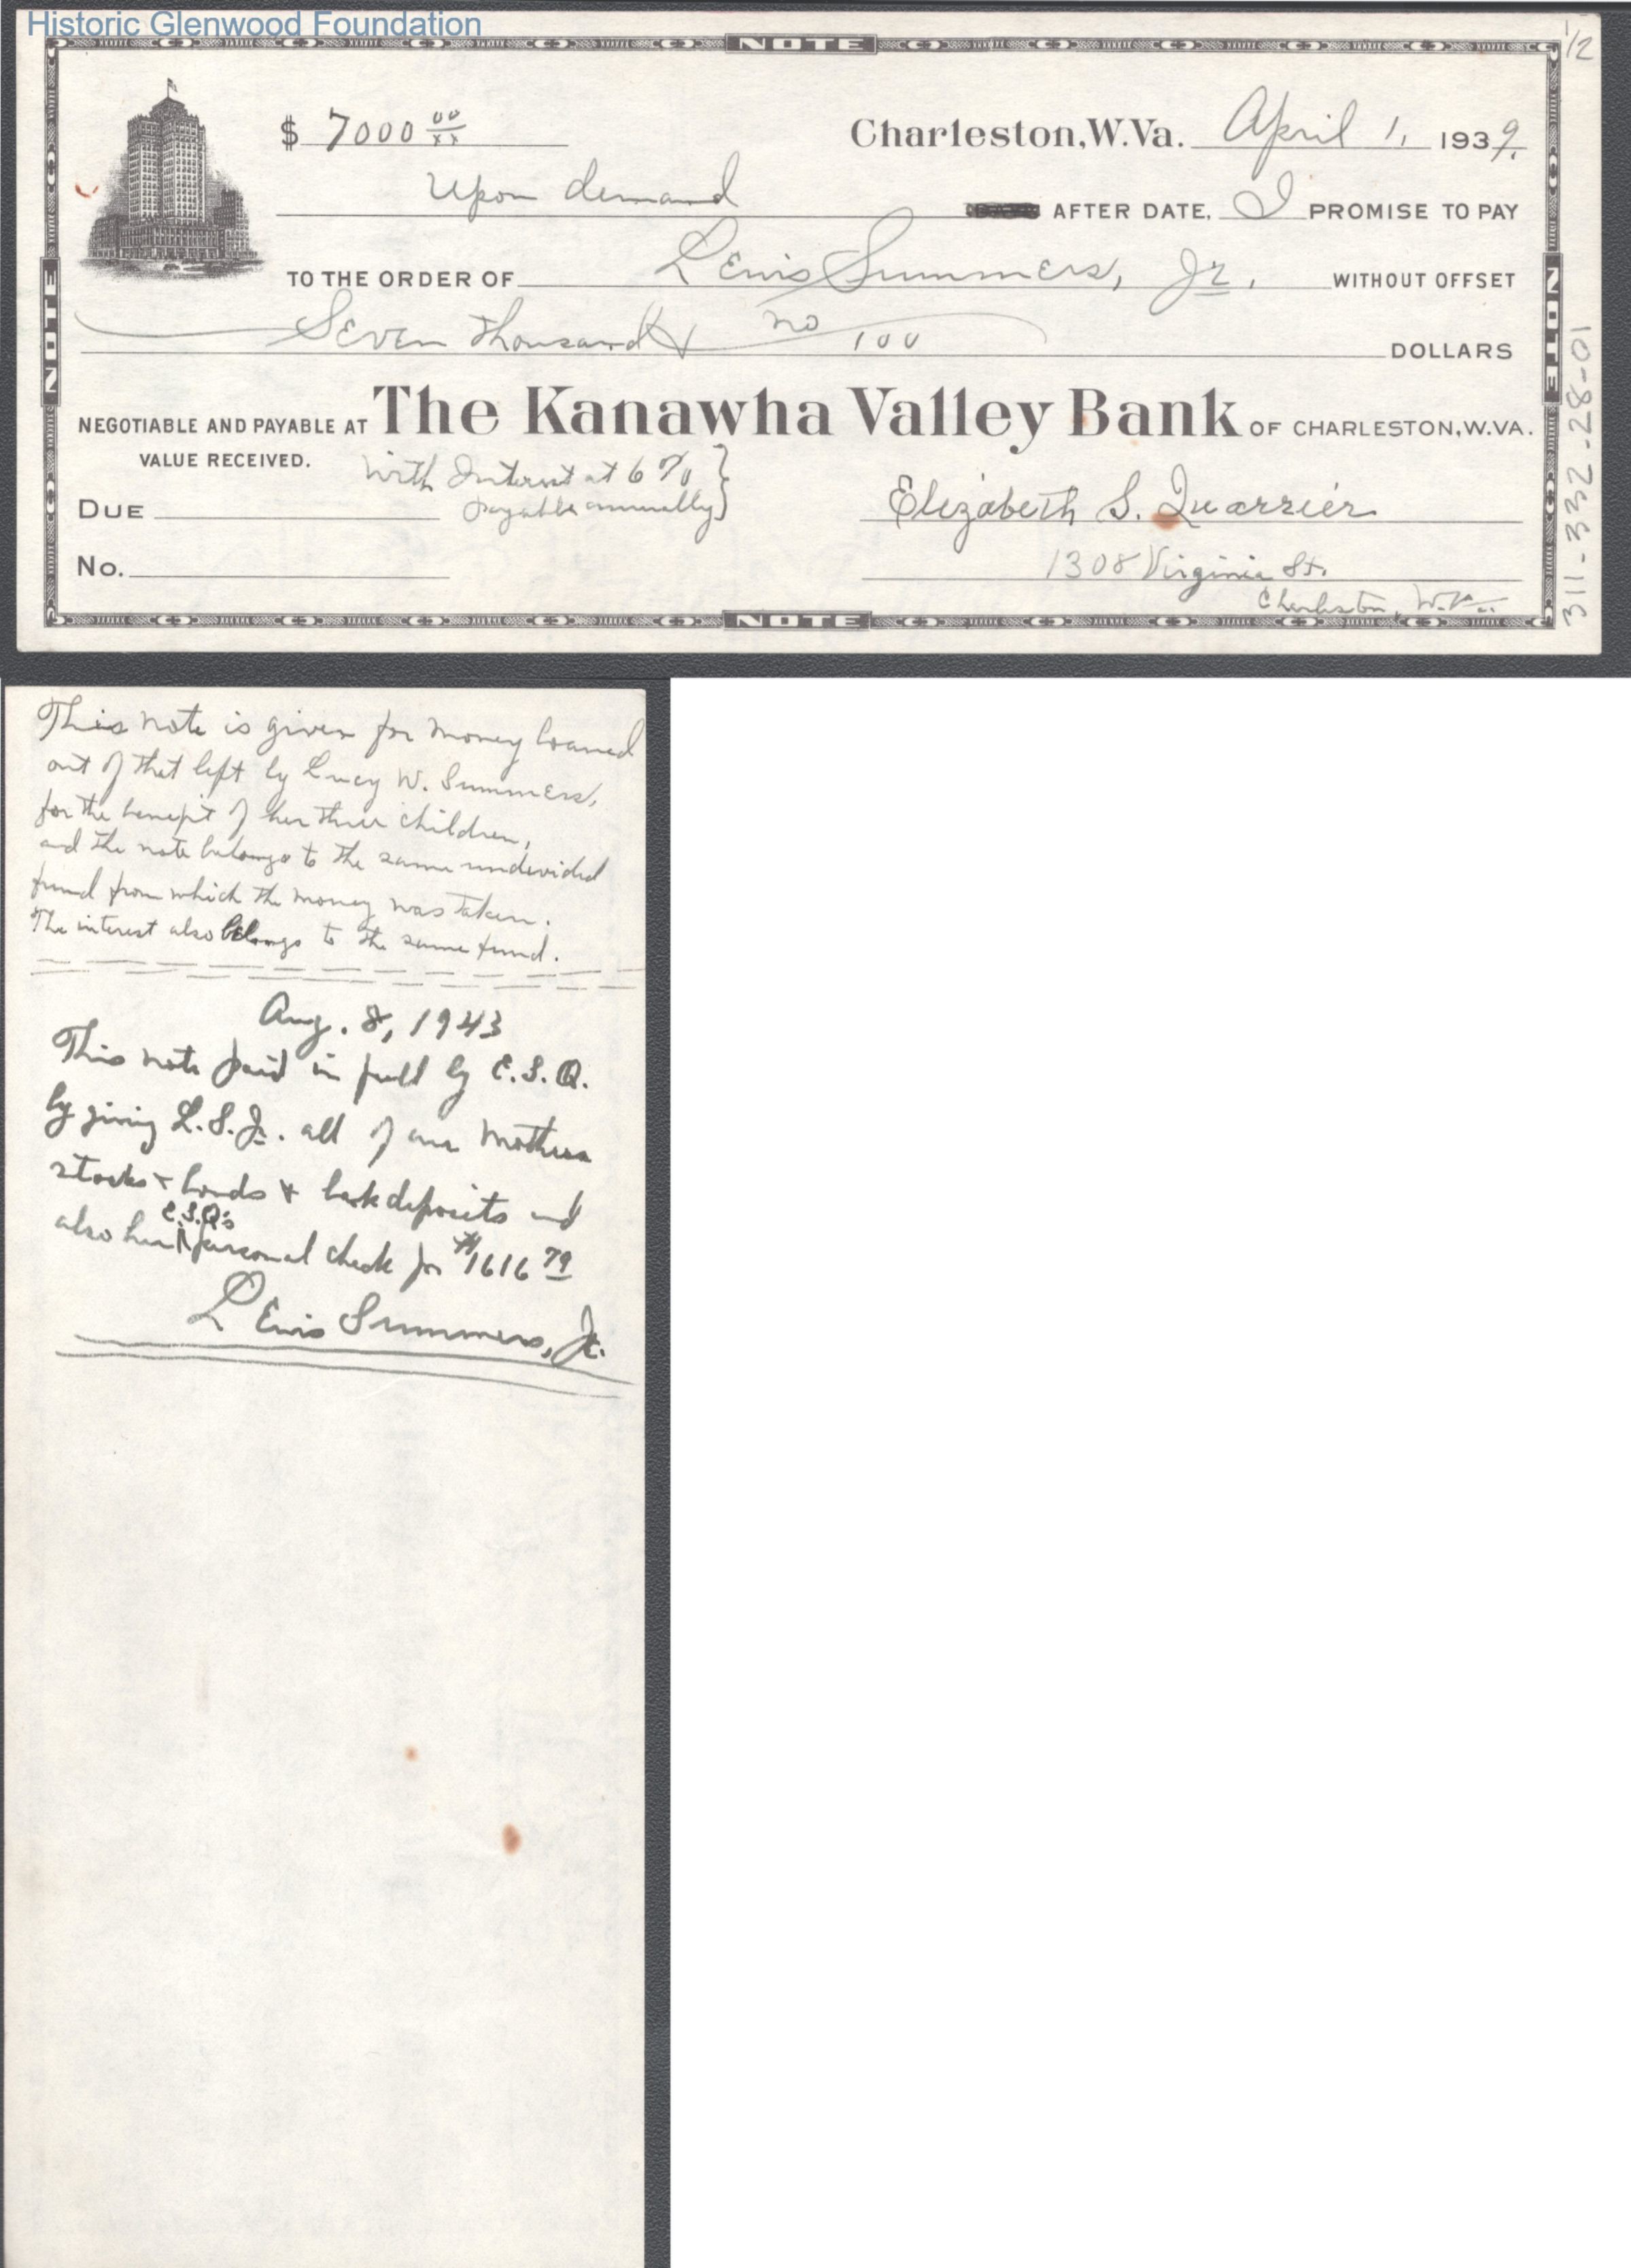 Historic Glenwood Foundation
NOTE
1/2
$ 7000 00/xx Charleston, W.Va. April 1, 1939.
Upon demand AFTER DATE, I PROMISE TO PAY
TO THE ORDER OF Lewis Summers, Jr. WITHOUT OFFSET
Seven thousand & no/100 DOLLARS
NEGOTIABLE AND PAYABLE AT The Kanawha Valley Bank OF CHARLESTON, W.VA.
VALUE RECEIVED. With Interest at 6%
DUE payable annually
Elizabeth S. Quarrier
No. 1308 Virginia St.
Charleston, W.Va.
NOTE
NOTE
NOTE
311-332-28-01
This note is given for money loaned
out of that left by Lucy W. Summers,
for the benefit of her three children,
and the note belongs to the same undivided
fund from which the money was taken.
The interest also belongs to the same fund.
Aug. 8, 1943
This note paid in full by E.S.Q.
by giving L.S.Jr. all of our Mothers
stocks + bonds + bank deposits and
also her E.S.Q's personal check for $1616 79
Lewis Summers, Jr.